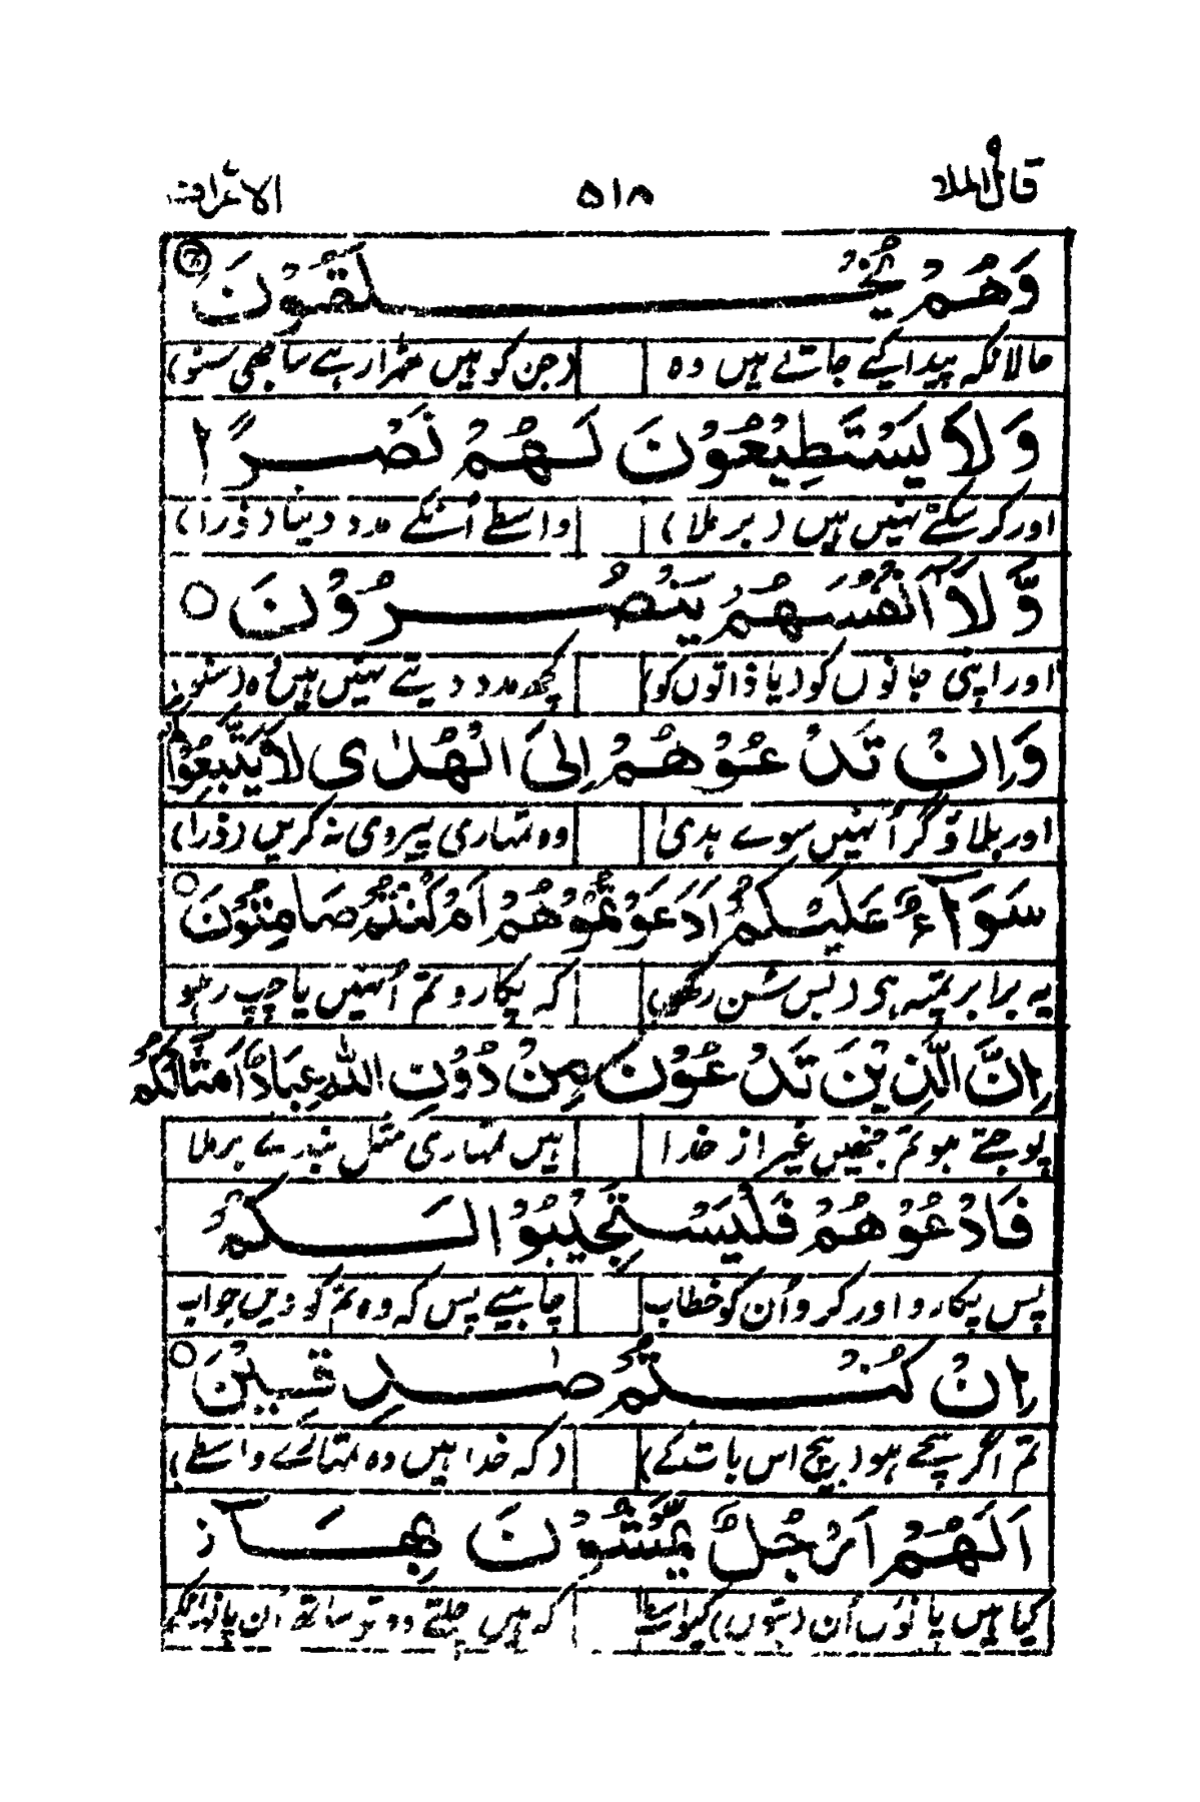 قال الملا ۹ ۵۱۸ الاعراف
وَهُمْ يُخْلَقُوْنَ
حالانکہ پیدا کیے جاتے ہیں وہ (جن کو ہیں ٹھہرا رہے ساجھی سنو)
وَلَا يَسْتَطِيْعُوْنَ لَهُمْ نَصْرًا
اور کر سکتے نہیں ہیں (بر ملا) واسطے اُنکے مدد دینا (ذرا)
وَّلَآ اَنْفُسَهُمْ يَنْصُرُوْنَ ○
اور اپنی جانوں کو (یا ذاتوں کو) کچھ مدد دیتے نہیں ہیں وہ (سنو)
وَاِنْ تَدْعُوْهُمْ اِلَى الْهُدٰى لَا يَتَّبِعُوْا
اور بلاؤ گر اُنہیں سوے ہدیٰ وہ تمہاری پیروی نہ کریں (ذرا)
سَوَآءٌ عَلَيْكُمْ اَدَعَوْتُمُوْهُمْ اَمْ كُنْتُمْ صَامِتُوْنَ ○
یہ برابر تمپہ ہی (بس سُن رکھو) کہ پکارو تم اُنہیں یا چپ رہو
اِنَّ الَّذِيْنَ تَدْعُوْنَ مِنْ دُوْنِ اللّٰهِ عِبَادٌ اَمْثَالُكُمْ
پوجتے ہو تم جنہیں غیر از خدا ہیں تمہاری مثل بندے برملا
فَادْعُوْهُمْ فَلْيَسْتَجِيْبُوْا لَكُمْ
پس پکارو اور کرو اُن کو خطاب چاہیے پس کہ وہ تم کو دیں جواب
اِنْ كُنْتُمْ صٰدِقِيْنَ ○
تم اگر سچے ہو (بیچ اس بات کے) (کہ خدا ہیں وہ تمہارے واسطے)
اَلَهُمْ اَرْجُلٌ يَّمْشُوْنَ بِهَآ ز
کیا ہیں پانوں اُن (بتوں) کیواسطے کہ ہیں چلتے وہ ساتھ اُن پانوں کے